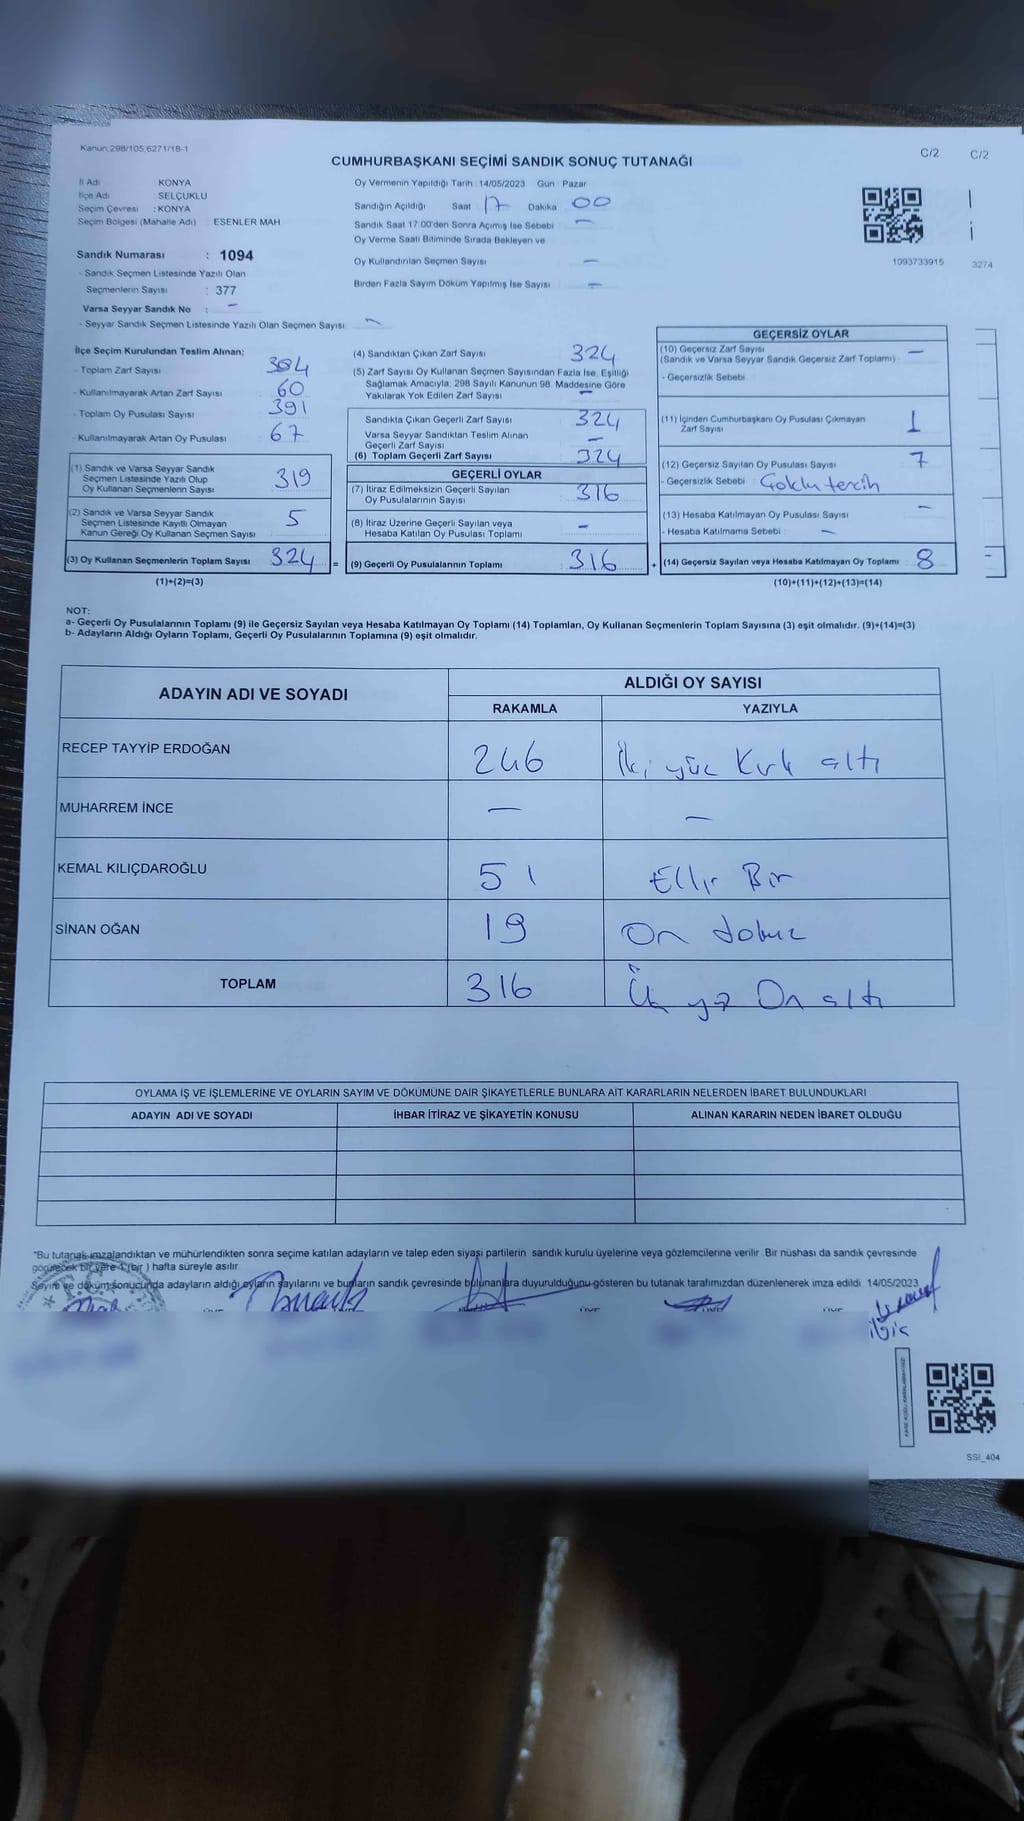 Kanun:298/105;6271/18-1
C/2 C/2
CUMHURBAŞKANI SEÇİMİ SANDIK SONUÇ TUTANAĞI
İl Adı KONYA
İlçe Adı SELÇUKLU
Seçim Çevresi : KONYA
Seçim Bölgesi (Mahalle Adı) : ESENLER MAH
Sandık Numarası : 1094
- Sandık Seçmen Listesinde Yazılı Olan
Seçmenlerin Sayısı : 377
Varsa Seyyar Sandık No : –
- Seyyar Sandık Seçmen Listesinde Yazılı Olan Seçmen Sayısı: –
Oy Vermenin Yapıldığı Tarih :14/05/2023 Gün Pazar
Sandığın Açıldığı Saat 17 Dakika 00
Sandık Saat 17:00'den Sonra Açımış İse Sebebi : –
Oy Verme Saati Bitiminde Sırada Bekleyen ve
Oy Kullandırılan Seçmen Sayısı –
Birden Fazla Sayım Döküm Yapılmış İse Sayısı –
1093733915 3274
İlçe Seçim Kurulundan Teslim Alınan;
- Toplam Zarf Sayısı : 384
- Kullanılmayarak Artan Zarf Sayısı : 60
- Toplam Oy Pusulası Sayısı : 391
- Kullanılmayarak Artan Oy Pusulası : 67
(1) Sandık ve Varsa Seyyar Sandık
Seçmen Listesinde Yazılı Olup
Oy Kullanan Seçmenlerin Sayısı 319
(2) Sandık ve Varsa Seyyar Sandık
Seçmen Listesinde Kayıtlı Olmayan
Kanun Gereği Oy Kullanan Seçmen Sayısı 5
(3) Oy Kullanan Seçmenlerin Toplam Sayısı 324 =
(1)+(2)=(3)
(4) Sandıktan Çıkan Zarf Sayısı 324
(5) Zarf Sayısı Oy Kullanan Seçmen Sayısından Fazla İse, Eşitliği
Sağlamak Amacıyla, 298 Sayılı Kanunun 98. Maddesine Göre
Yakılarak Yok Edilen Zarf Sayısı –
Sandıkta Çıkan Geçerli Zarf Sayısı 324
Varsa Seyyar Sandıktan Teslim Alınan
Geçerli Zarf Sayısı –
(6) Toplam Geçerli Zarf Sayısı 324
GEÇERLİ OYLAR
(7) İtiraz Edilmeksizin Geçerli Sayılan
Oy Pusulalarının Sayısı 316
(8) İtiraz Üzerine Geçerli Sayılan veya
Hesaba Katılan Oy Pusulası Toplamı –
(9) Geçerli Oy Pusulalarının Toplamı 316 +
GEÇERSİZ OYLAR
(10) Geçersiz Zarf Sayısı
(Sandık ve Varsa Seyyar Sandık Geçersiz Zarf Toplamı) –
- Geçersizlik Sebebi
(11) İçinden Cumhurbaşkanı Oy Pusulası Çıkmayan
Zarf Sayısı 1
(12) Geçersiz Sayılan Oy Pusulası Sayısı 7
- Geçersizlik Sebebi Çoklu tercih
(13) Hesaba Katılmayan Oy Pusulası Sayısı –
- Hesaba Katılmama Sebebi –
(14) Geçersiz Sayılan veya Hesaba Katılmayan Oy Toplamı 8
(10)+(11)+(12)+(13)=(14)
NOT:
a- Geçerli Oy Pusulalarının Toplamı (9) ile Geçersiz Sayılan veya Hesaba Katılmayan Oy Toplamı (14) Toplamları, Oy Kullanan Seçmenlerin Toplam Sayısına (3) eşit olmalıdır. (9)+(14)=(3)
b- Adayların Aldığı Oyların Toplamı, Geçerli Oy Pusulalarının Toplamına (9) eşit olmalıdır.
ADAYIN ADI VE SOYADI ALDIĞI OY SAYISI
RAKAMLA YAZIYLA
RECEP TAYYİP ERDOĞAN 246 İki yüz Kırk altı
MUHARREM İNCE – –
KEMAL KILIÇDAROĞLU 51 Elli Bir
SİNAN OĞAN 19 On dokuz
TOPLAM 316 Üç yüz On altı
OYLAMA İŞ VE İŞLEMLERİNE VE OYLARIN SAYIM VE DÖKÜMÜNE DAİR ŞİKAYETLERLE BUNLARA AİT KARARLARIN NELERDEN İBARET BULUNDUKLARI
ADAYIN ADI VE SOYADI İHBAR İTİRAZ VE ŞİKAYETİN KONUSU ALINAN KARARIN NEDEN İBARET OLDUĞU
*Bu tutanak imzalandıktan ve mühürlendikten sonra seçime katılan adayların ve talep eden siyasi partilerin sandık kurulu üyelerine veya gözlemcilerine verilir. Bir nüshası da sandık çevresinde
görülecek bir yere 1 (bir ) hafta süreyle asılır.
Sayım ve döküm sonucunda adayların aldığı oyların sayılarını ve bunların sandık çevresinde bulunanlara duyurulduğunu gösteren bu tutanak tarafımızdan düzenlenerek imza edildi. 14/05/2023
SSI_404